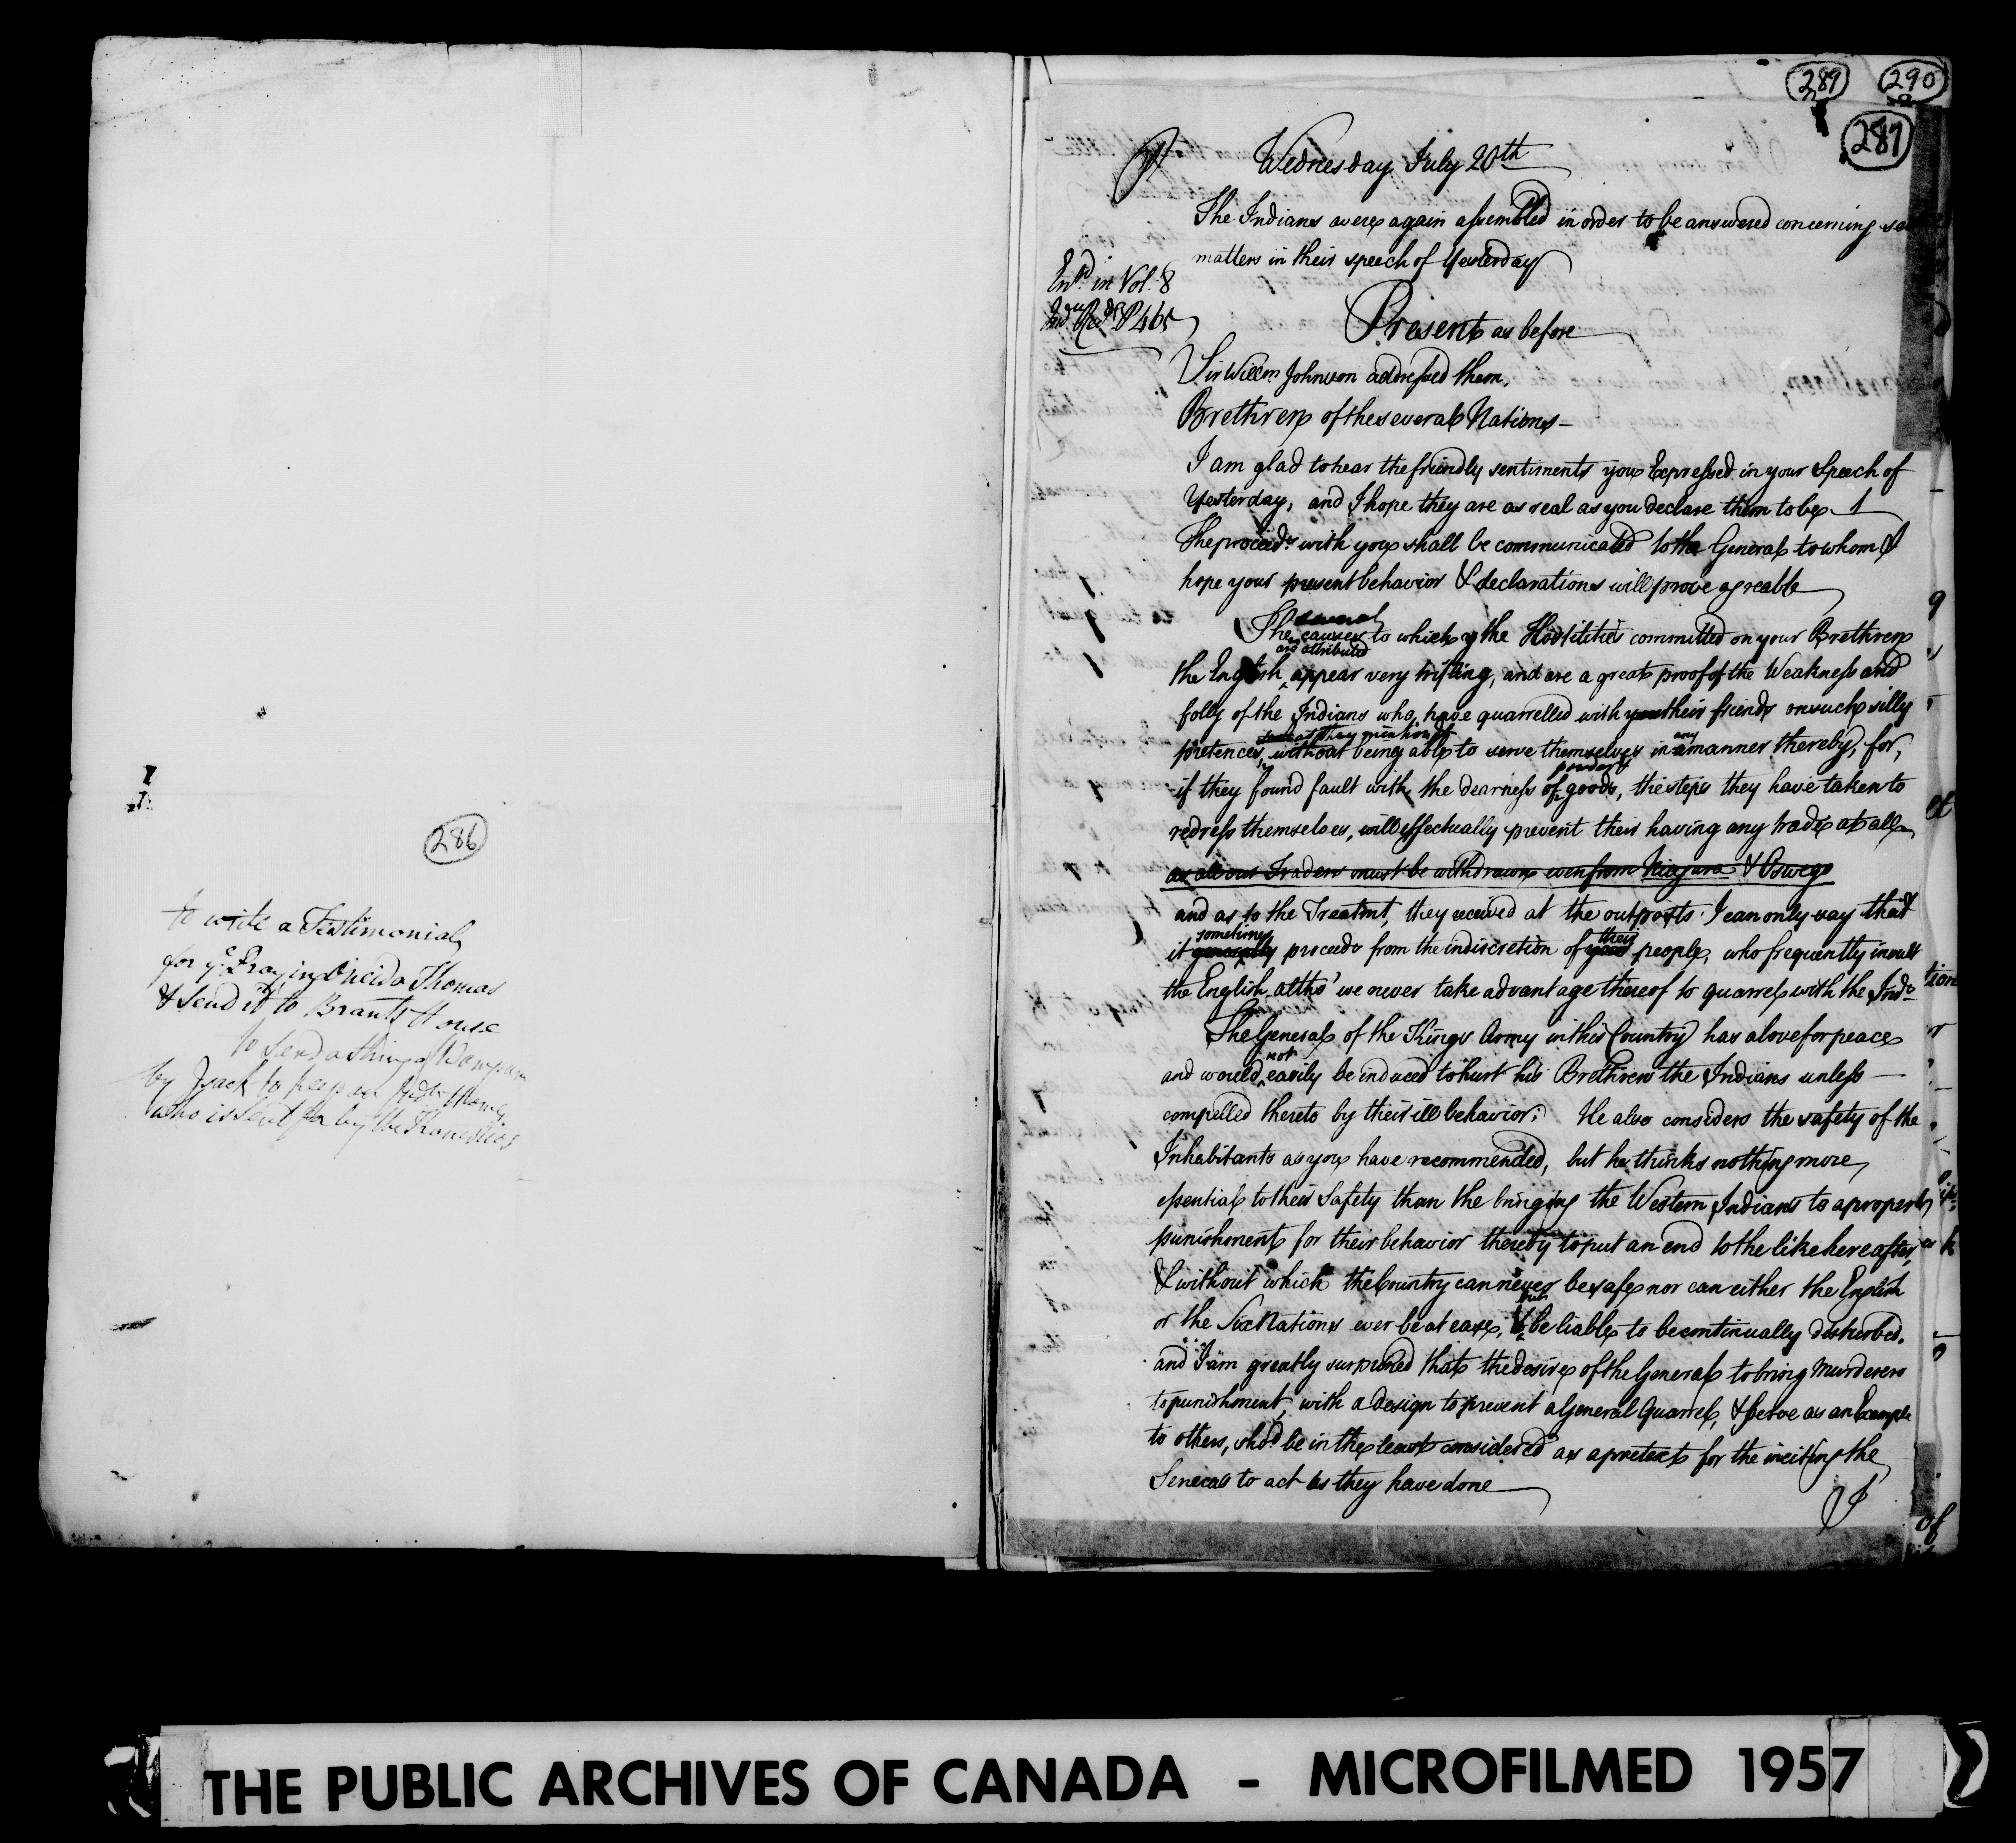 286
to write a Testimonial
for ye. Praying Oneida Thomas
& Send it to Brants House
to Send a string of Wampum
by Isack to keep
who is sent for by the
289
290
287
Wednesday July 20th
The Indians were again assembled in order to be answered concerning
matters in their speech of Yesterday
Entd. in Vol. 8
Present as before
Sir Willm. Johnson addressed them,
Brethren of the several Nations —
I am glad to hear the friendly sentiments you Expressed in your Speech of
Yesterday, and I hope they are as real as you declare them to be
The proceeds. with you shall be communicated to the General to whom I
hope your present behavior & declarations will prove agreable
several
The causes to which the Hostilities committed on your Brethren
are attributed
the English appear very trifling, and are a great proof of the Weakness and
folly of the Indians who have quarrelled with your their friends on such silly
as they mention
any
pretences, without being able to serve themselves in a manner thereby, for,
powder &
if they found fault with the dearness of goods, the steps they have taken to
redress themselves, will effectually prevent their having any trade at all
as all our Traders must be withdrawn even from Niagara & Oswego
and as to the Treatmt. they received at the outposts I can only say that
sometimes
their
it generally proceeds from the indiscretion of your people, who frequently insult
the English altho' we never take advantage thereof to quarrel with the Inds.
The General of the Kings Army in this Country has a love for peace
not
and would easily be induced to hurt his Brethren the Indians unless —
compelled thereto by their ill behavior; He also considers the safety of the
Inhabitants as you have recommended, but he thinks nothing more
essential to their Safety than the bringing the Western Indians to a proper
punishment for their behavior thereby to put an end to the like hereafter,
& without which the Country can never be safe nor can either the English
but
or the Six Nations ever be at ease, & be liable to be continually disturbed.
and I am greatly surprised that the desire of the General to bring Murderers
to punishment, with a design to prevent a General Quarrel, & serve as an Example
to others, shod. be in the least considered as a pretext for the inciting the
Senecas to act as they have done
I
of
THE PUBLIC ARCHIVES OF CANADA - MICROFILMED 1957